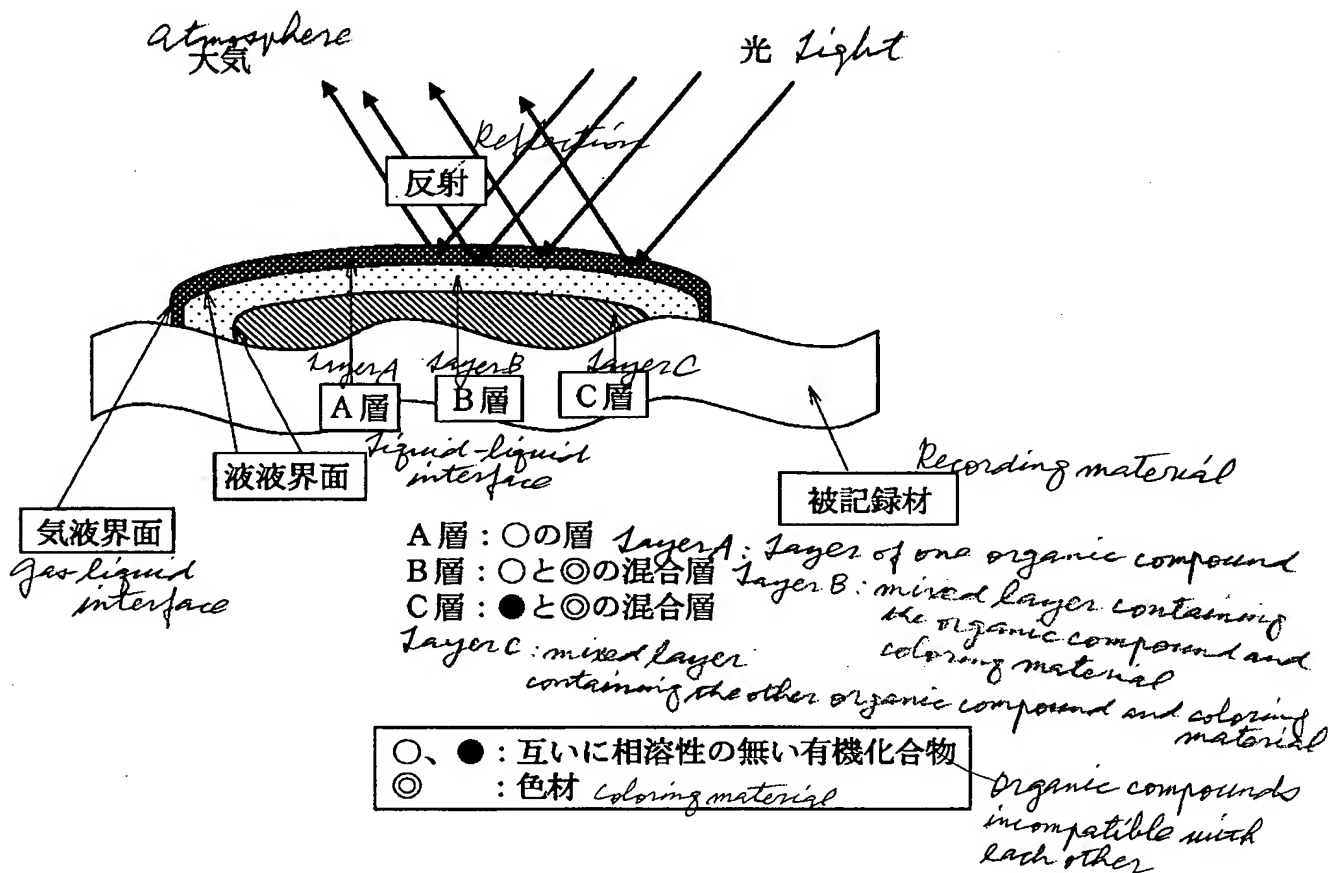 Atmosphere
大気
光 Light
Reflection
反射
Layer A
Layer B
Layer C
A層
B層
C層
Liquid-liquid
interface
液液界面
気液界面
Gas-liquid
interface
Recording material
被記録材
A層：○の層 Layer A: Layer of one organic compound
B層：○と◎の混合層 Layer B: mixed layer containing
the organic compound and
coloring material
C層：●と◎の混合層
Layer C: mixed layer
containing the other organic compound and coloring
material
○、●：互いに相溶性の無い有機化合物
◎　　：色材 coloring material
Organic compounds
incompatible with
each other